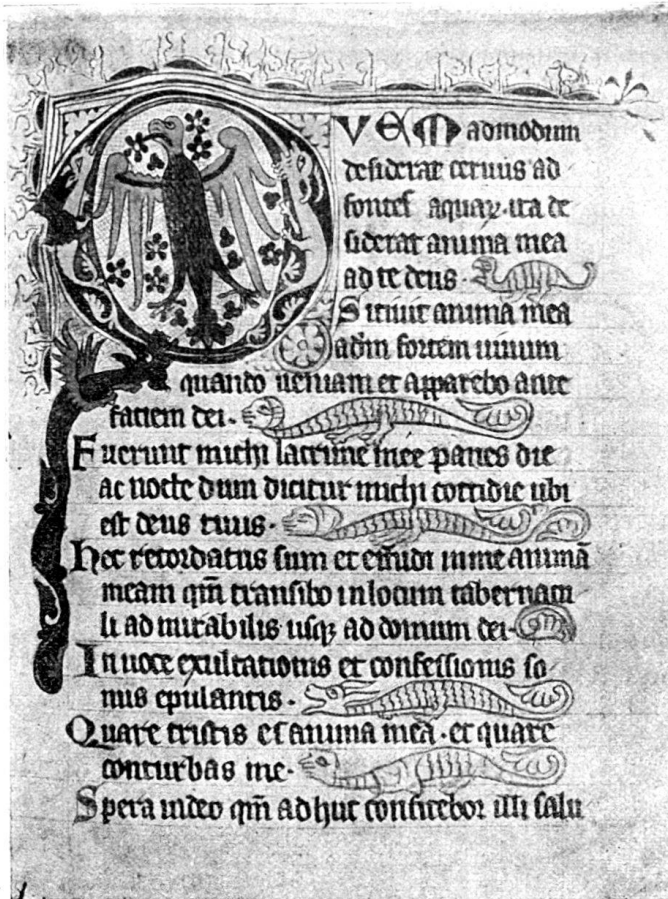 QVEMadmodum
desiderat ceruus ad
fontes aquaꝝ· ita de
siderat anima mea
ad te deus·
Sitiuit anima mea
ad dm̄ fortem uiuum
quando ueniam et apparebo ante
faciem dei·
Fuerunt michi lacrime mee panes die
ac nocte dum dicitur michi cottidie ubi
est deus tuus·
Hec recordatus sum et effudi in me animā
meam qm̄ transibo in locum tabernacu
li ad mirabilis usqꝫ ad domum dei·
In uoce exultationis et confessionis so
nus epulantis·
Quare tristis es anima mea· et quare
conturbas me·
Spera in deo qm̄ adhuc confitebor illi salu